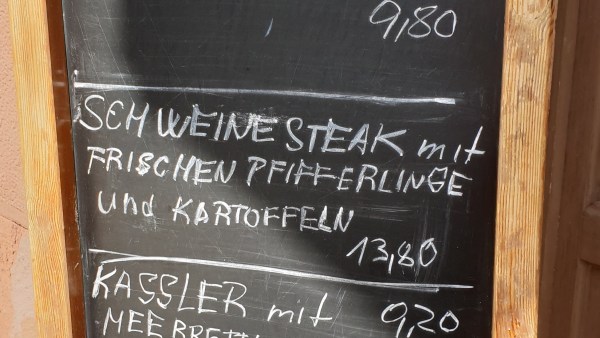 9,80
SCHWEINESTEAK mit
FRISCHEN PFIFFERLINGE
und KARTOFFELN
13,80
KASSLER mit 9,20